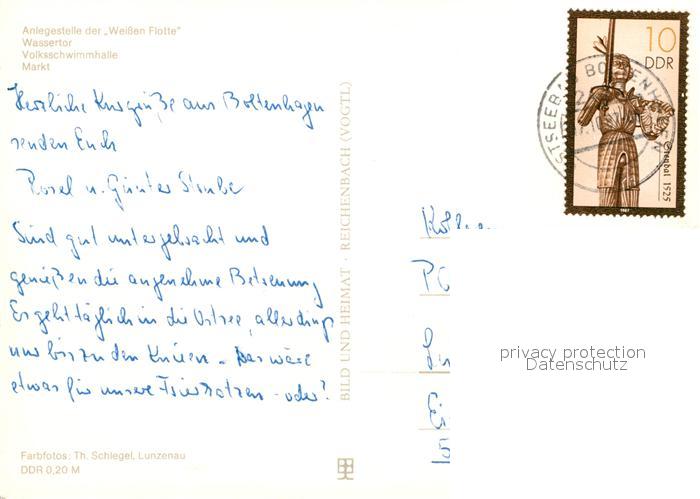 Anlegestelle der „Weißen Flotte"
Wassertor
Volksschwimmhalle
Markt
Herzliche Kurgrüße aus Boltenhagen
senden Euch
Rosel u. Günter
Sind gut untergebracht und
genießen die angenehme Betreuung
Es geht täglich in die Ostsee, allerdings
nur bis zu den Knien. Das wäre
etwas für unsere - oder?
Farbfotos: Th. Schlegel, Lunzenau
DDR 0,20 M
BILD UND HEIMAT · REICHENBACH (VOGTL)
10
DDR
Stendal 1525
1987
OSTSEEBAD BOLTENHAGEN
privacy protection
Datenschutz